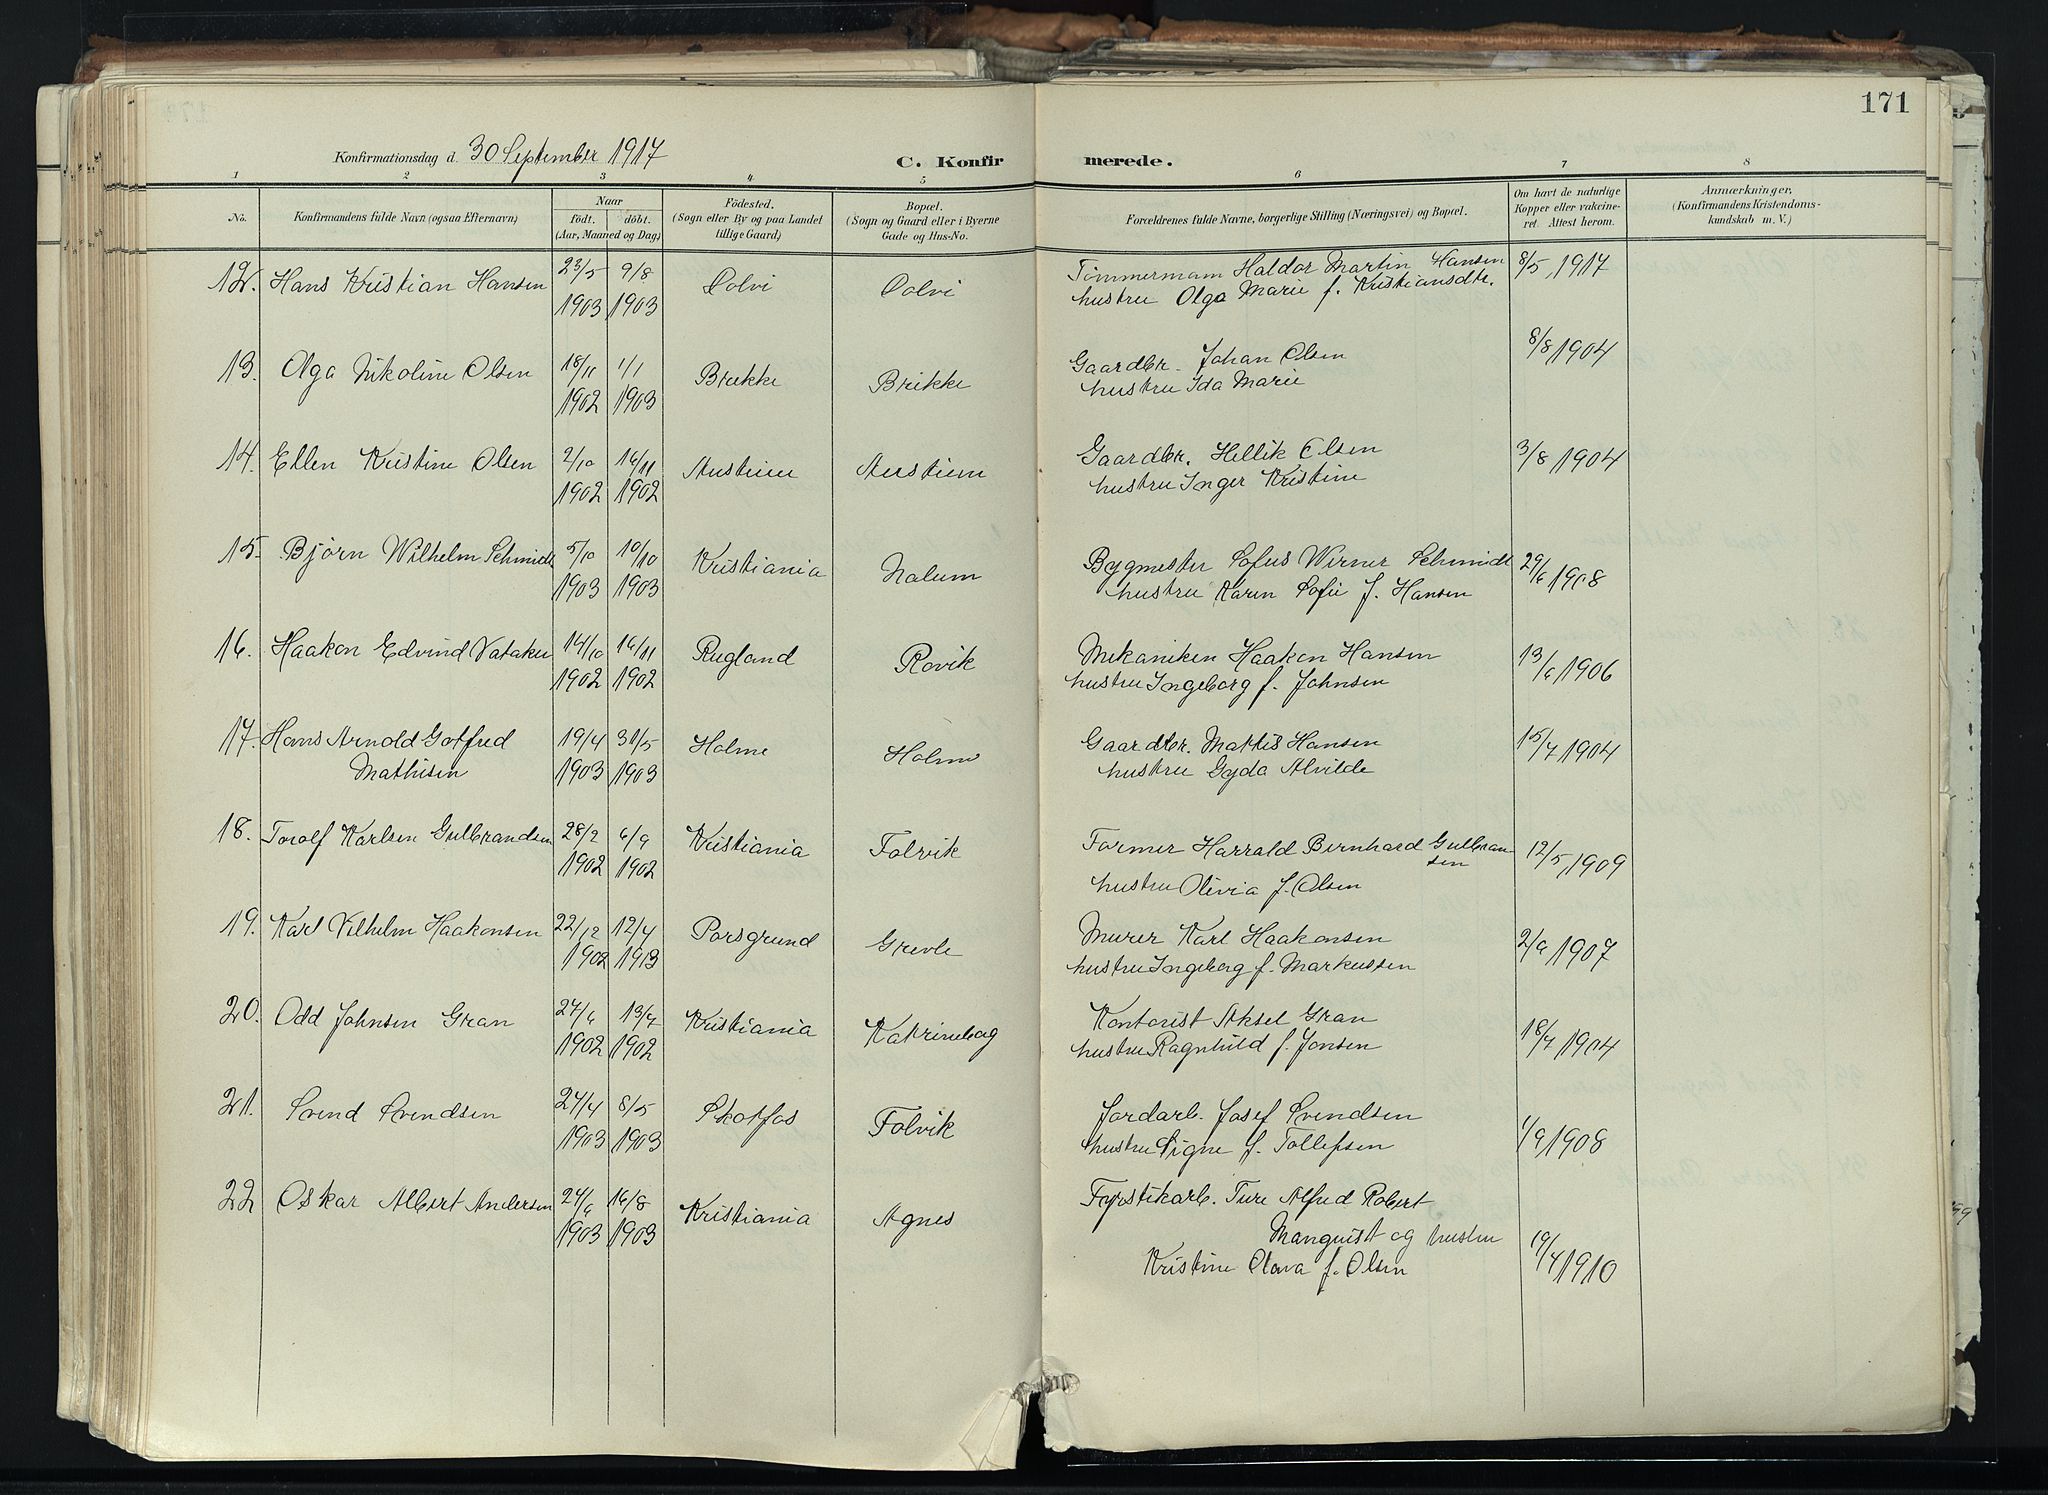 171
Konfirmationsdag d. 30 September 1917
C. Konfirmerede.
1 2 3 4 5 6 7 8
No. Konfirmandens fulde Navn (ogsaa Efternavn) Naar födt. döbt. (Aar, Maaned og Dag.) Födested. (Sogn eller By og paa Landet tillige Gaard.) Bopæl. (Sogn og Gaard eller i Byerne Gade og Hus-No. Forældrenes fulde Navne, borgerlige Stilling (Næringsvei) og Bopæl. Om havt de naturlige Kopper eller vakcineret. Attest herom. Anmærkninger. (Konfirmandens Kristendomskundskab m. V.)
12. Hans Kristian Hansen 23/5 1903 9/8 1903 Solvi Solvi Tömmermam Haldor Martin Hansen 8/5 1917
hustru Olga Marie f. Kristiansdtr.
13. Olga Nikoline Olsen 18/11 1902 1/1 1903 Brekke Brekke Gaardbr. Johan Olsen 8/8 1904
hustru Ida Marie
14. Ellen Kristine Olsen 2/10 1902 16/11 1902 Austeien Gaardbr. Hellik Olsen 3/8 1904
hustru Inger Kristine
15. Björn Wilhelm Schmidt 5/10 1903 10/10 1903 Kristiania Nalum Bygmester Sofus Werner Schmidt 29/6 1908
hustru Karen Sofie f. Hansen
16. Haakon Edvind Vataker 14/10 1902 16/11 1902 Rugland Rovik Mekaniken Haakon Hansen 13/6 1906
hustru Ingeborg f. Johnsen
17. Hans Arnold Gotfred 19/4 1903 31/5 1903 Holme Holme Gaardbr. Mattis Hansen 15/7 1904
Mathisen hustru Gyda Alvilde
18. Torolf Karlsen Gulbrandsen 28/2 1902 6/9 1902 Kristiania Folvik Former Harrald Bernhard Gulbransen 12/5 1909
hustru Olivia f. Olsen
19. Karl Vilhelm Haakonsen 22/12 1902 12/4 1913 Porsgrund Grevle Murer Karl Haakonsen 2/9 1907
hustru Ingeborg f. Markussen
20. Odd Johnsen Gran 27/6 1902 13/7 1902 Kristiania Katrineborg Kontorist Aksel Gran 18/7 1904
hustru Ragnhild f. Jonsen
21. Svend Svendsen 24/4 1903 8/5 1903 Skotfos Folvik Jordarb. Josef Svendsen 1/9 1908
hustru Signe f. Tollefsen
22 Oskar Albert Andersen 24/6 1903 16/8 1903 Kristiania Agnes Fyrstikarb. Ture Alfred Robert
Manquist og hustru
Kristine Olava f. Olsen 19/4 1910